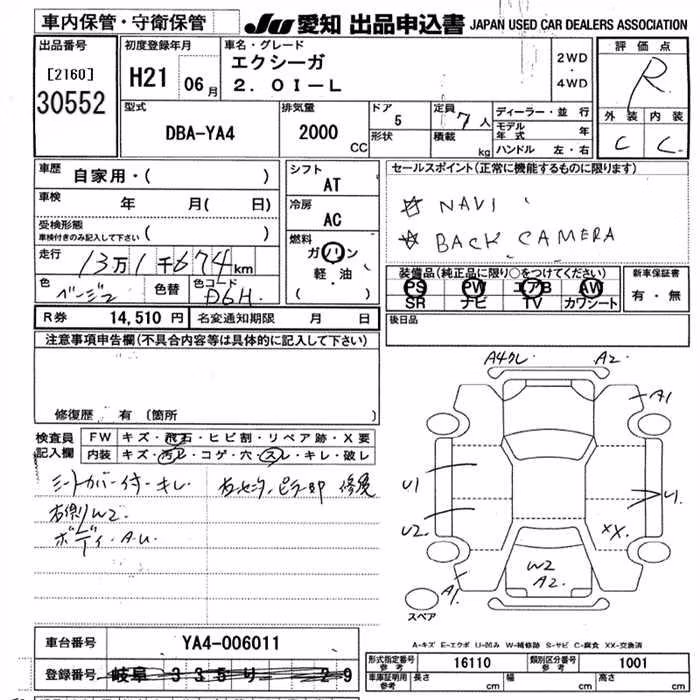 車内保管・守衛保管
JU 愛知 出品申込書 JAPAN USED CAR DEALERS ASSOCIATION
出品番号
[2160]
30552
初度登録年月
H21 06月
車名・グレード
エクシーガ
2.0I-L
2WD・4WD
評価点
R
外装 内装
C C
型式
DBA-YA4
排気量
2000 CC
ドア
5
形状
定員
7人
積載 kg
ディーラー・並行
モデル年式 年
ハンドル 左・右
車歴
自家用・( )
車検
年 月( 日)
受検形態
車検付きのみ記入して下さい( )
走行
13万1千674km
色
ベージュ
色替
色コード
D6H
シフト
AT
冷房
AC
燃料
ガソリン
軽・油
( )
セールスポイント(正常に機能するものに限ります)
☆ NAVI
☆ BACK CAMERA
装備品(純正品に限り○をつけてください)
PS PW エアB AW
SR ナビ TV カワシート
新車保証書
有・無
R券 14,510円 名変通知期限 月 日
後日品
注意事項申告欄(不具合内容等は具体的に記入して下さい)
修復歴 有 〔箇所 〕
検査員記入欄
FW キズ・飛石・ヒビ割・リペア跡・X要
内装 キズ・汚レ・コゲ・穴・スレ・キレ・破レ
シートカバー付・キレ 右センターピラー部 修復
右側W2
ボディ・A.U.
A4クレ A2
A1
U1
U1
U2
XX
W2
A2
A1
スペア
A-キズ E-エクボ U-凹み W-補修跡 S-サビ C-腐食 XX-交換済
車台番号 YA4-006011
登録番号 岐阜 335 り 29
形式指定番号 参考 16110 類別区分番号 参考 1001
車庫証明用 参考 長さ cm 幅 cm 高さ cm